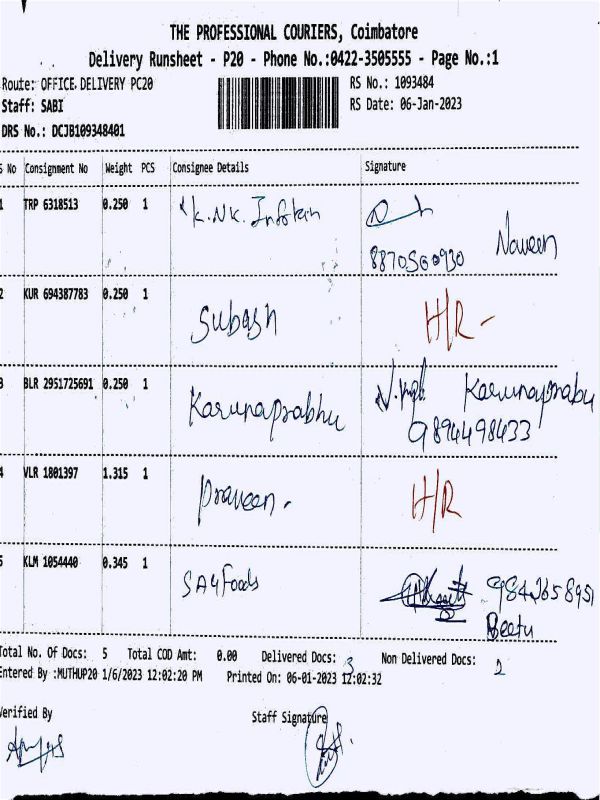 THE PROFESSIONAL COURIERS, Coimbatore
Delivery Runsheet - P20 - Phone No.:0422-3505555 - Page No.:1
Route: OFFICE DELIVERY PC20
RS No.: 1093484
Staff: SABI
RS Date: 06-Jan-2023
DRS No.: DCJB109348401
S No Consignment No Weight PCS Consignee Details Signature
1 TRP 6318513 0.250 1 K.NK. Infotain
8870560930 Naveen
2 KUR 694387783 0.250 1 Subash H/R -
3 BLR 2951725691 0.250 1 Karunaprabhu Karunaprabu
9894498433
4 VLR 1801397 1.315 1 Praveen - H/R
5 KLM 1054440 0.345 1 SA4Foods 9842658951
Beetu
Total No. Of Docs: 5 Total COD Amt: 0.00 Delivered Docs: 3 Non Delivered Docs: 2
Entered By :MUTHUP20 1/6/2023 12:02:20 PM Printed On: 06-01-2023 12:02:32
Verified By Staff Signature